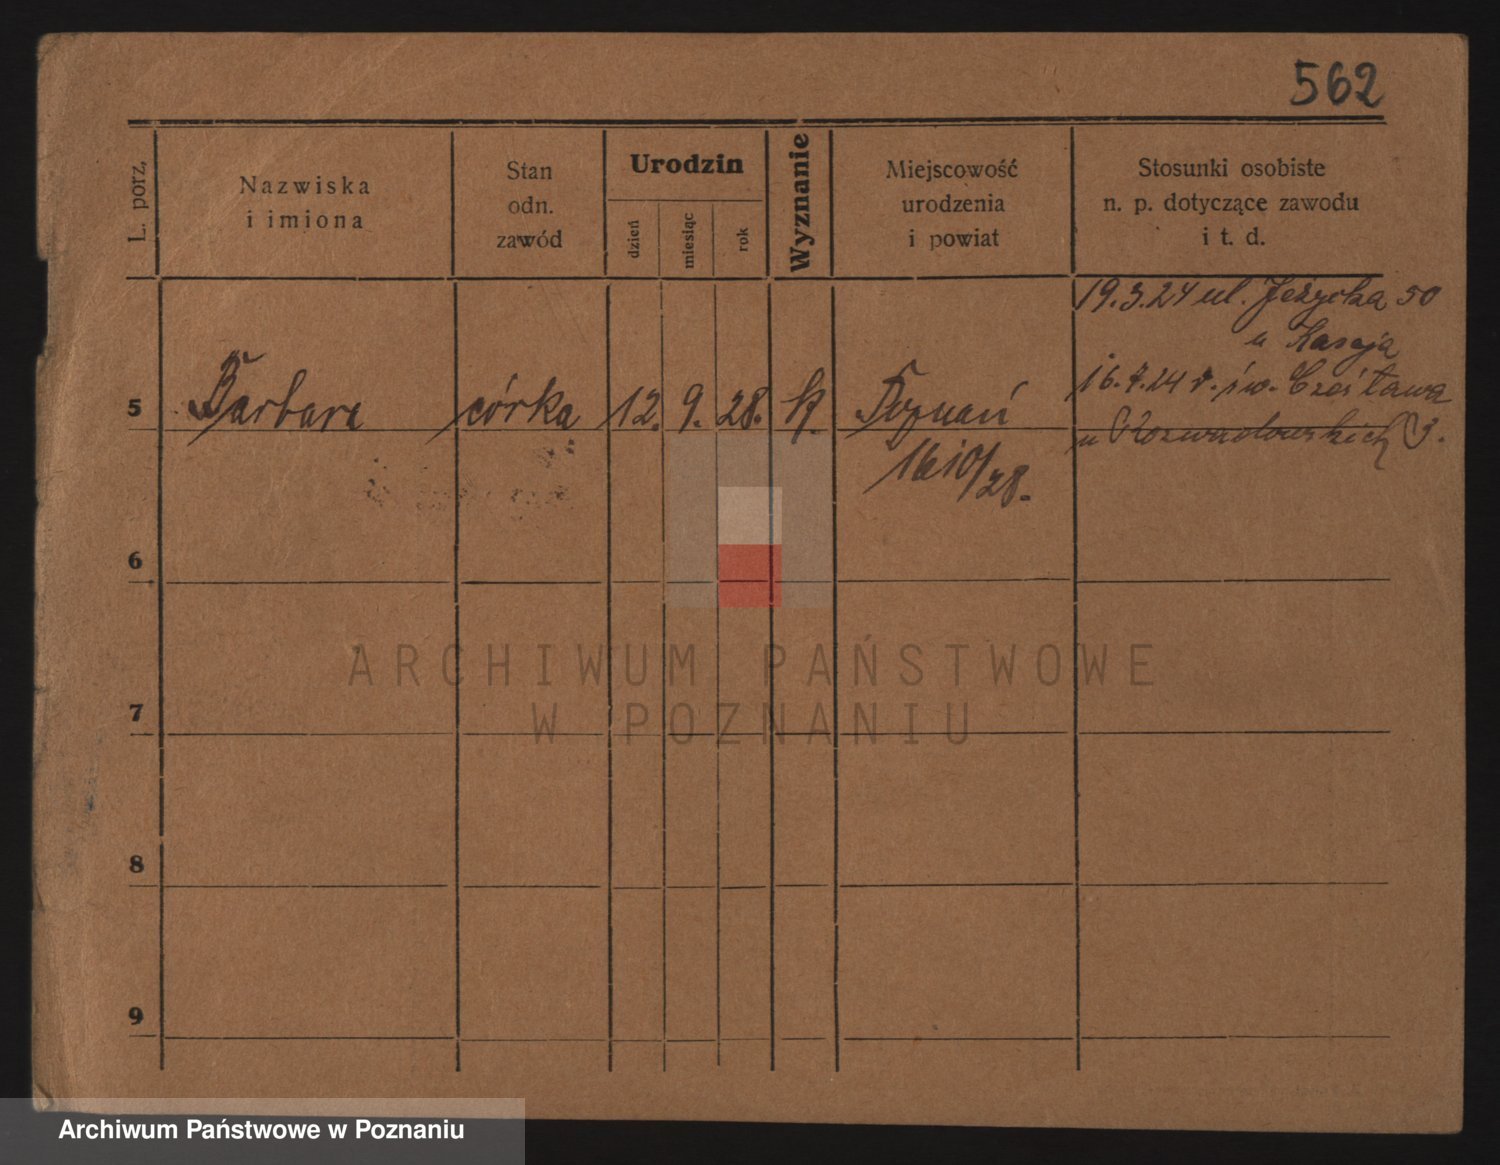 562
L. porz.
Nazwiska
i imiona
Stan
odn.
zawód
Urodzin
dzień
miesiąc
rok
Wyznanie
Miejscowość
urodzenia
i powiat
Stosunki osobiste
n. p. dotyczące zawodu
i t. d.
19.3.24 ul. Jeżycka 50
u
5 Barbara córka 12. 9. 28. kt. Poznań
16 10/28.
św. Czesława
u Rozwadowskich
6
7
8
9
ARCHIWUM PAŃSTWOWE
W POZNANIU
Archiwum Państwowe w Poznaniu